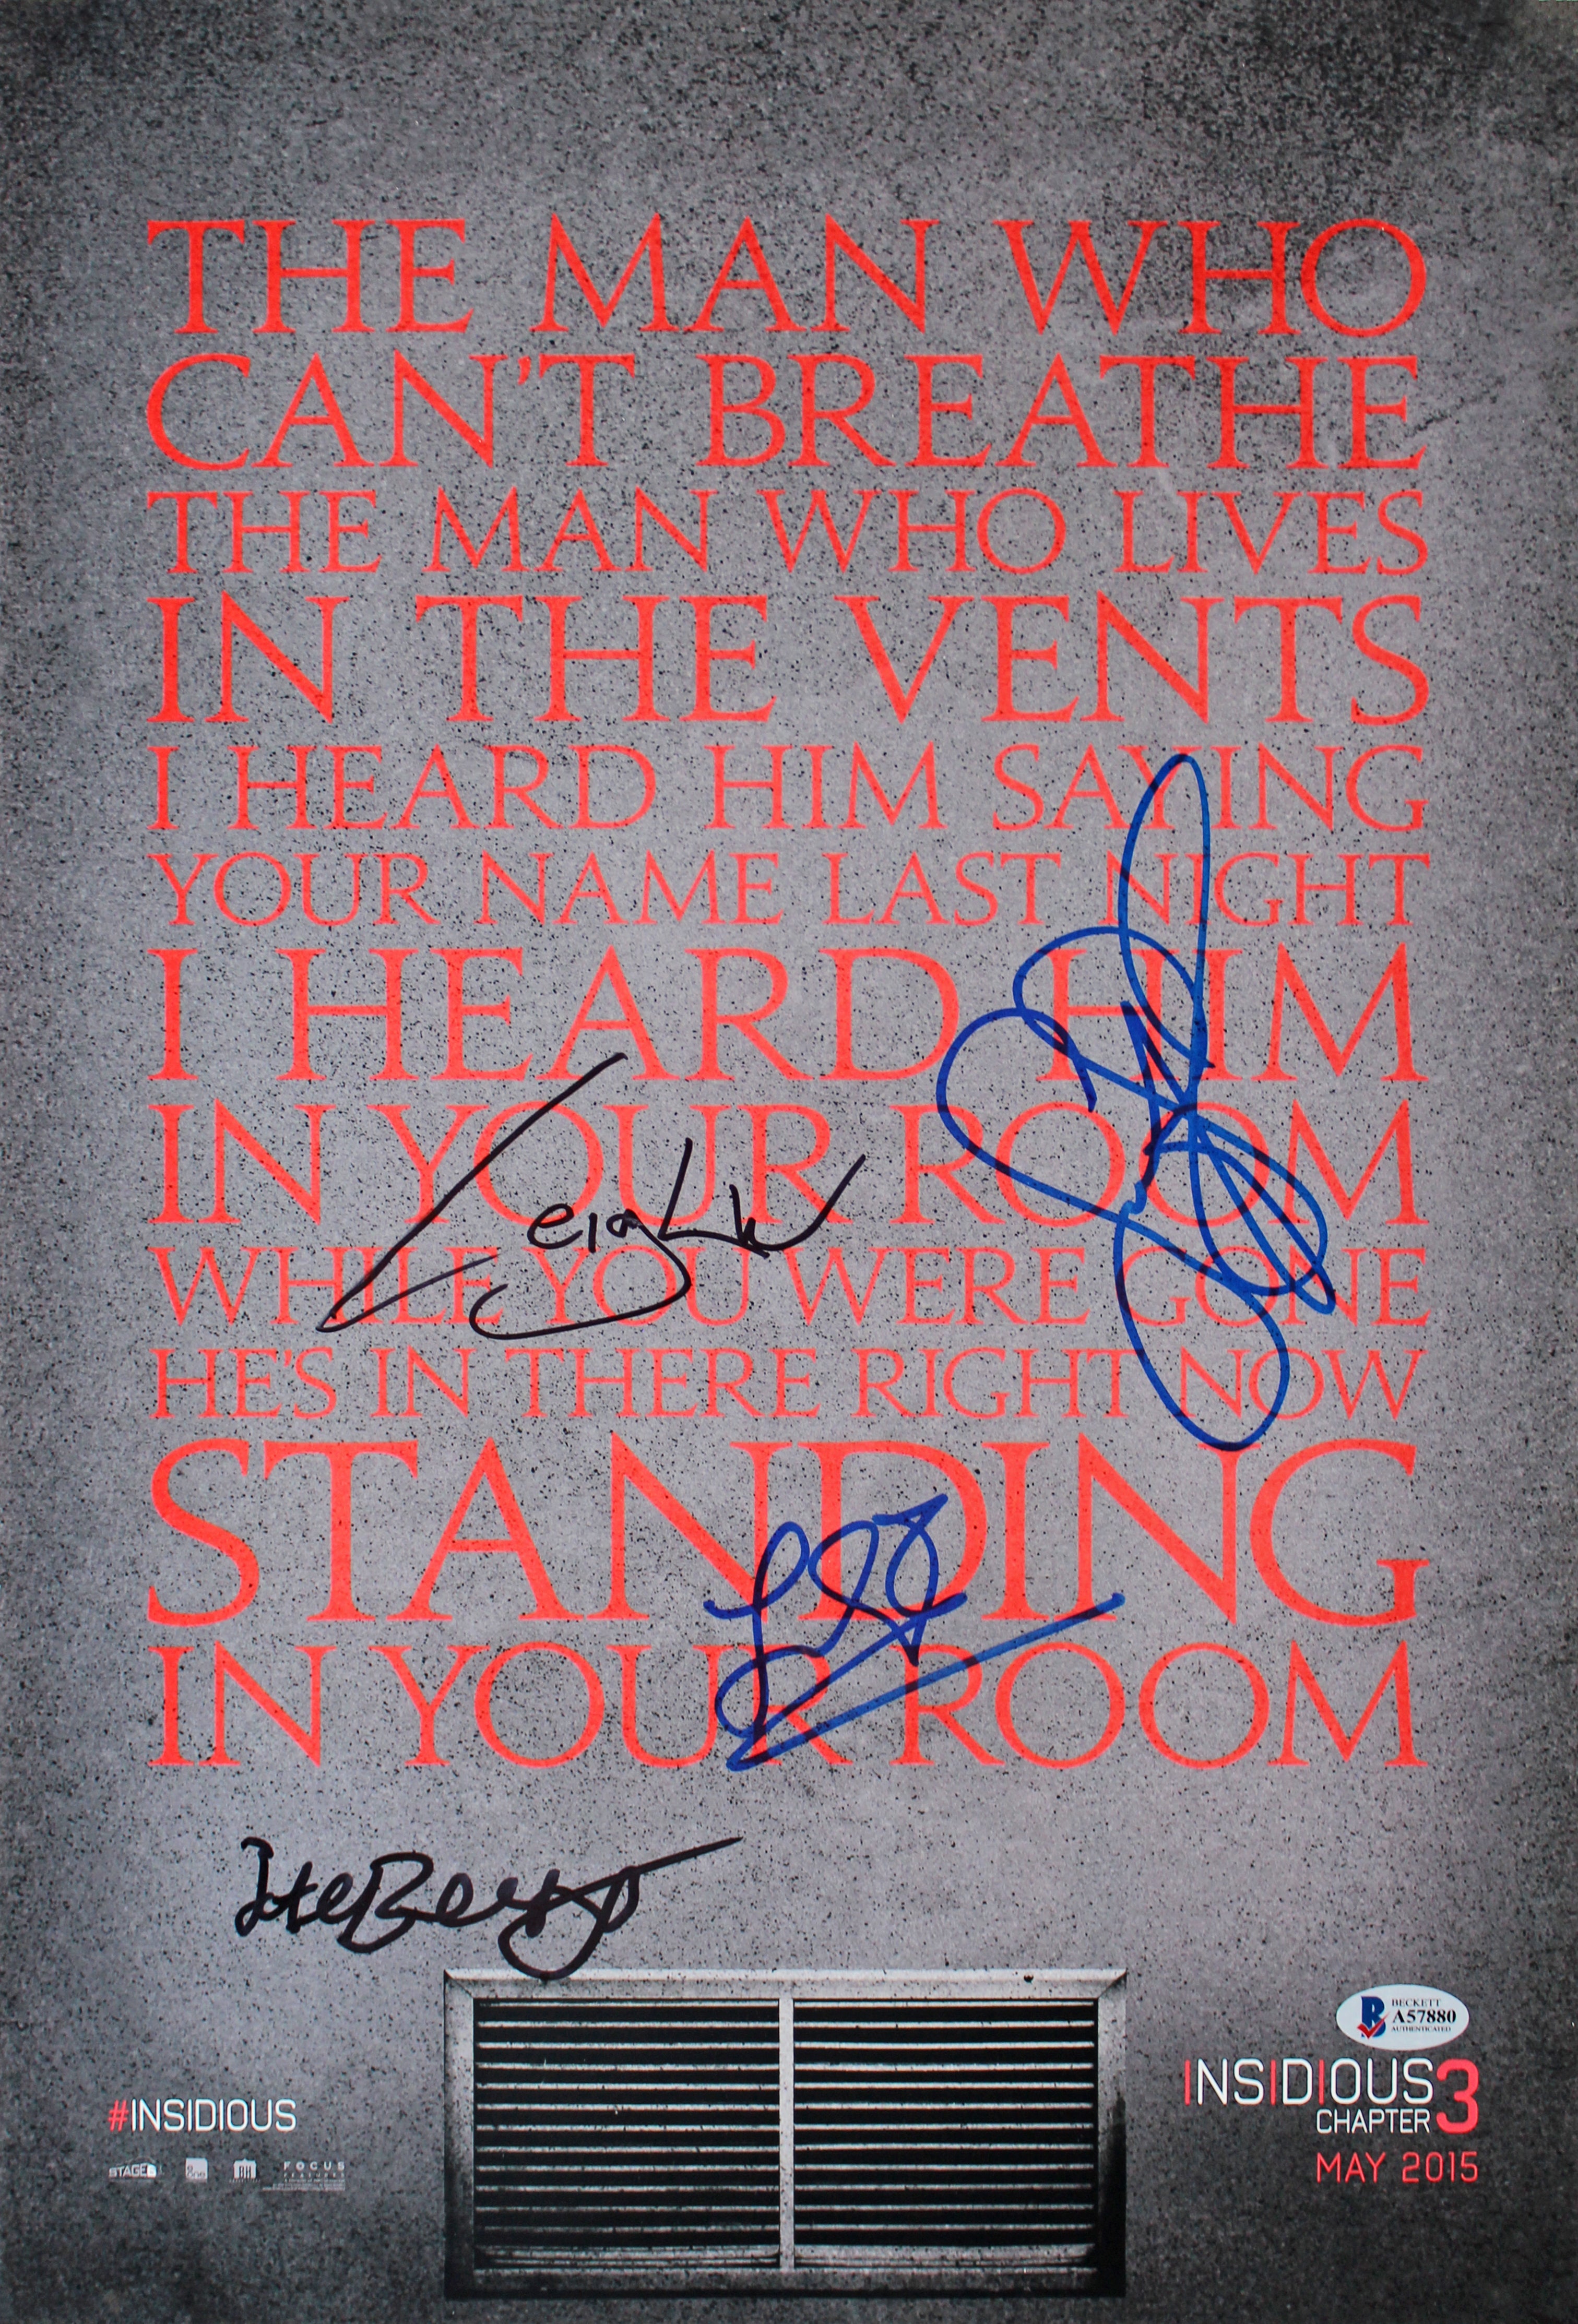 THE MAN WHO
CAN'T BREATHE
THE MAN WHO LIVES
IN THE VENTS
I HEARD HIM SAYING
YOUR NAME LAST NIGHT
I HEARD HIM
IN YOUR ROOM
Leigh W
WHILE YOU WERE GONE
HE'S IN THERE RIGHT NOW
STANDING
IN YOUR ROOM
BECKETT
A57880
AUTHENTICATED
INSIDIOUS
CHAPTER 3
MAY 2015
#INSIDIOUS
STAGE 6
FOCUS
FEATURES